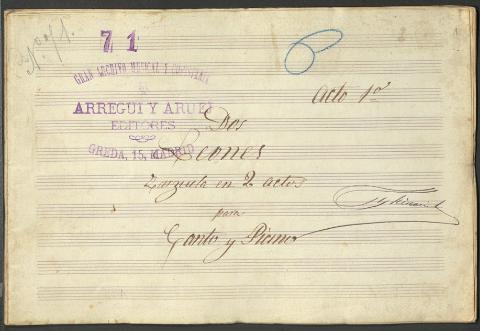 71
GRAN ARCHIVO MUSICAL Y COPISTERIA
DE
ARREGUI Y ARUEJ
EDITORES
GREDA, 15, MADRID
Acto 1º
Dos
Leones
Zarzuela en 2 actos
para
Canto y Piano